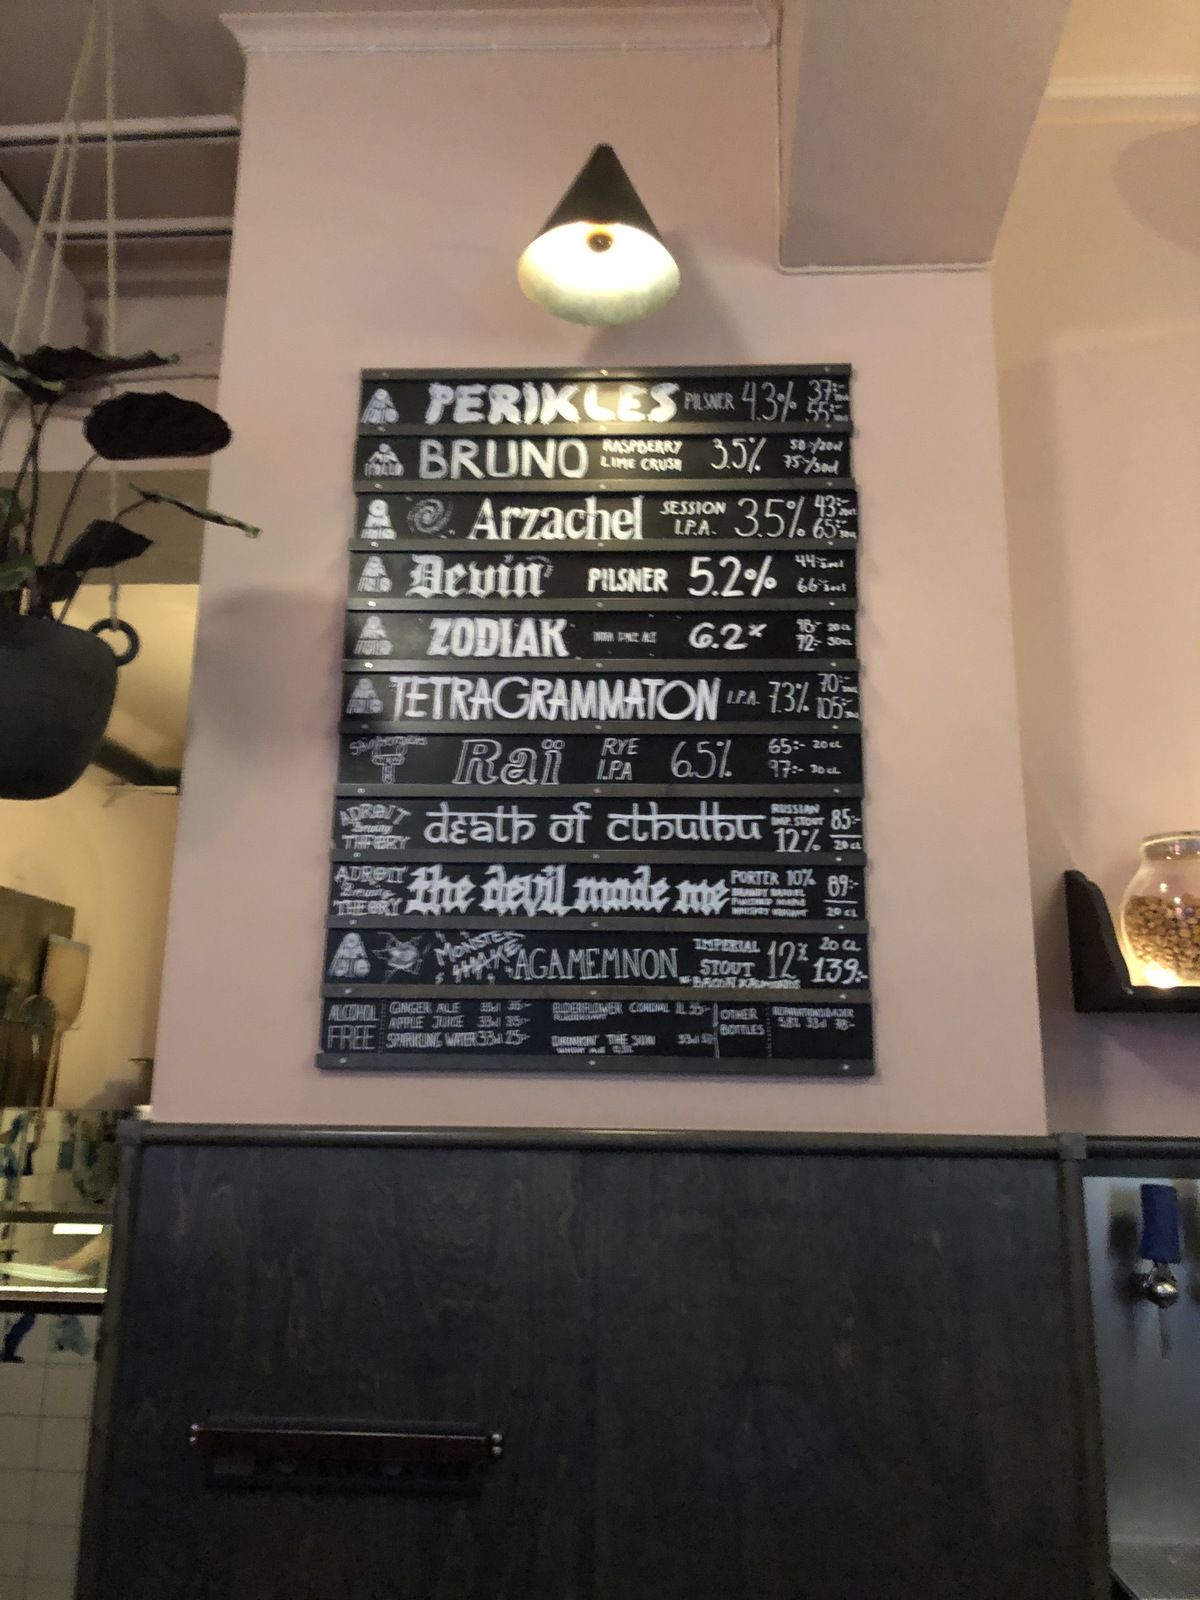 PERIKLES PILSNER 4.3% 37:- 55:-
BRUNO RASPBERRY LIME CRUSH 3.5% 50:-/20cl 75:-/30cl
Arzachel SESSION I.P.A. 3.5% 43:- 65:-
Devin PILSNER 5.2% 44:- 66:-
ZODIAK 6.2% 20cl 72:- 30cl
TETRAGRAMMATON I.P.A. 7.3% 70:- 105:-
Raï RYE I.P.A 6.5% 65:- 20cl 97:- 30cl
ADROIT Brewing THEORY death of cthulhu RUSSIAN IMP. STOUT 12% 85:- 20cl
ADROIT Brewing THEORY the devil made me PORTER 10% 89:- 20 cl
MONSTER SHAKE AGAMEMNON IMPERIAL STOUT 12% 20 cl 139:-
ALCOHOL FREE
GINGER ALE 33cl 35:-
APPLE JUICE 33cl 35:-
SPARKLING WATER 33cl 25:-
ELDERFLOWER
DRINKIN' THE SUN
OTHER BOTTLES